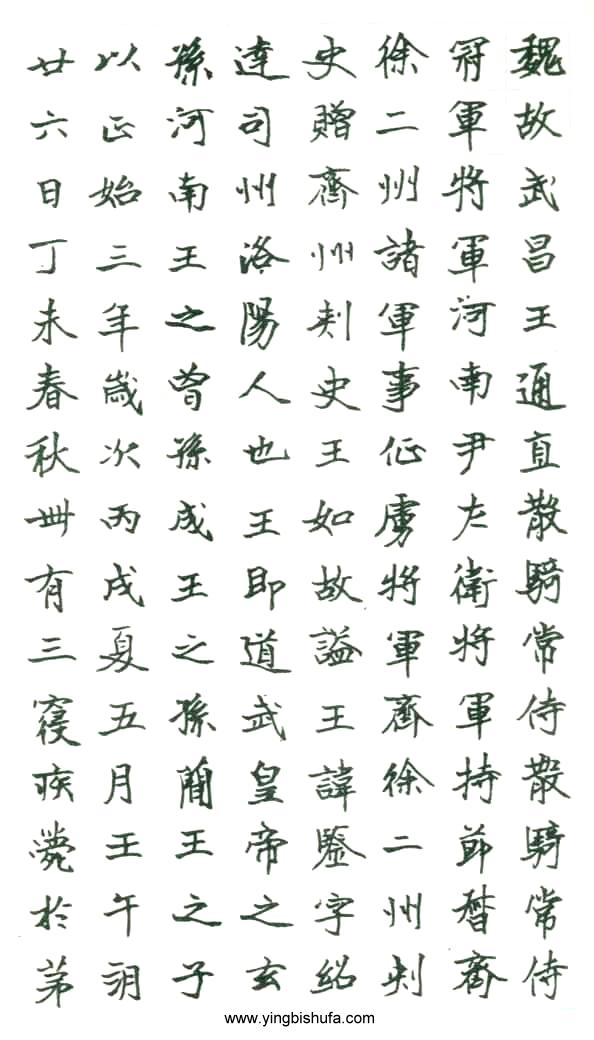 魏故武昌王通直散騎常侍散騎常侍
冠軍將軍河南尹左衛將軍持節督齊
徐二州諸軍事征虜將軍齊徐二州刺
史贈齊州刺史王如故謚王諱鑒字紹
達司州洛陽人也王即道武皇帝之玄
孫河南王之曾孫成王之孫簡王之子
以正始三年歲次丙戌夏五月壬午朔
廿六日丁未春秋卌有三寑疾薨於苐
www.yingbishufa.com